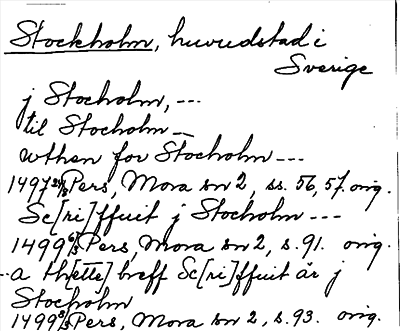 Stockholm, huvudstad i
Sverige
j Stocholm, ---
til Stocholm --
wthen for Stocholm ---
1497 Pers, Mora sn 2, ss. 56, 57. orig.
Sc[ri]ffuit j Stocholm ---
1499 6/3 Pers, Mora sn 2, s. 91. orig.
--a th[ette] breff Sc[ri]ffuit är j
Stocholm
1499 8/3 Pers, Mora sn 2, s. 93. orig.